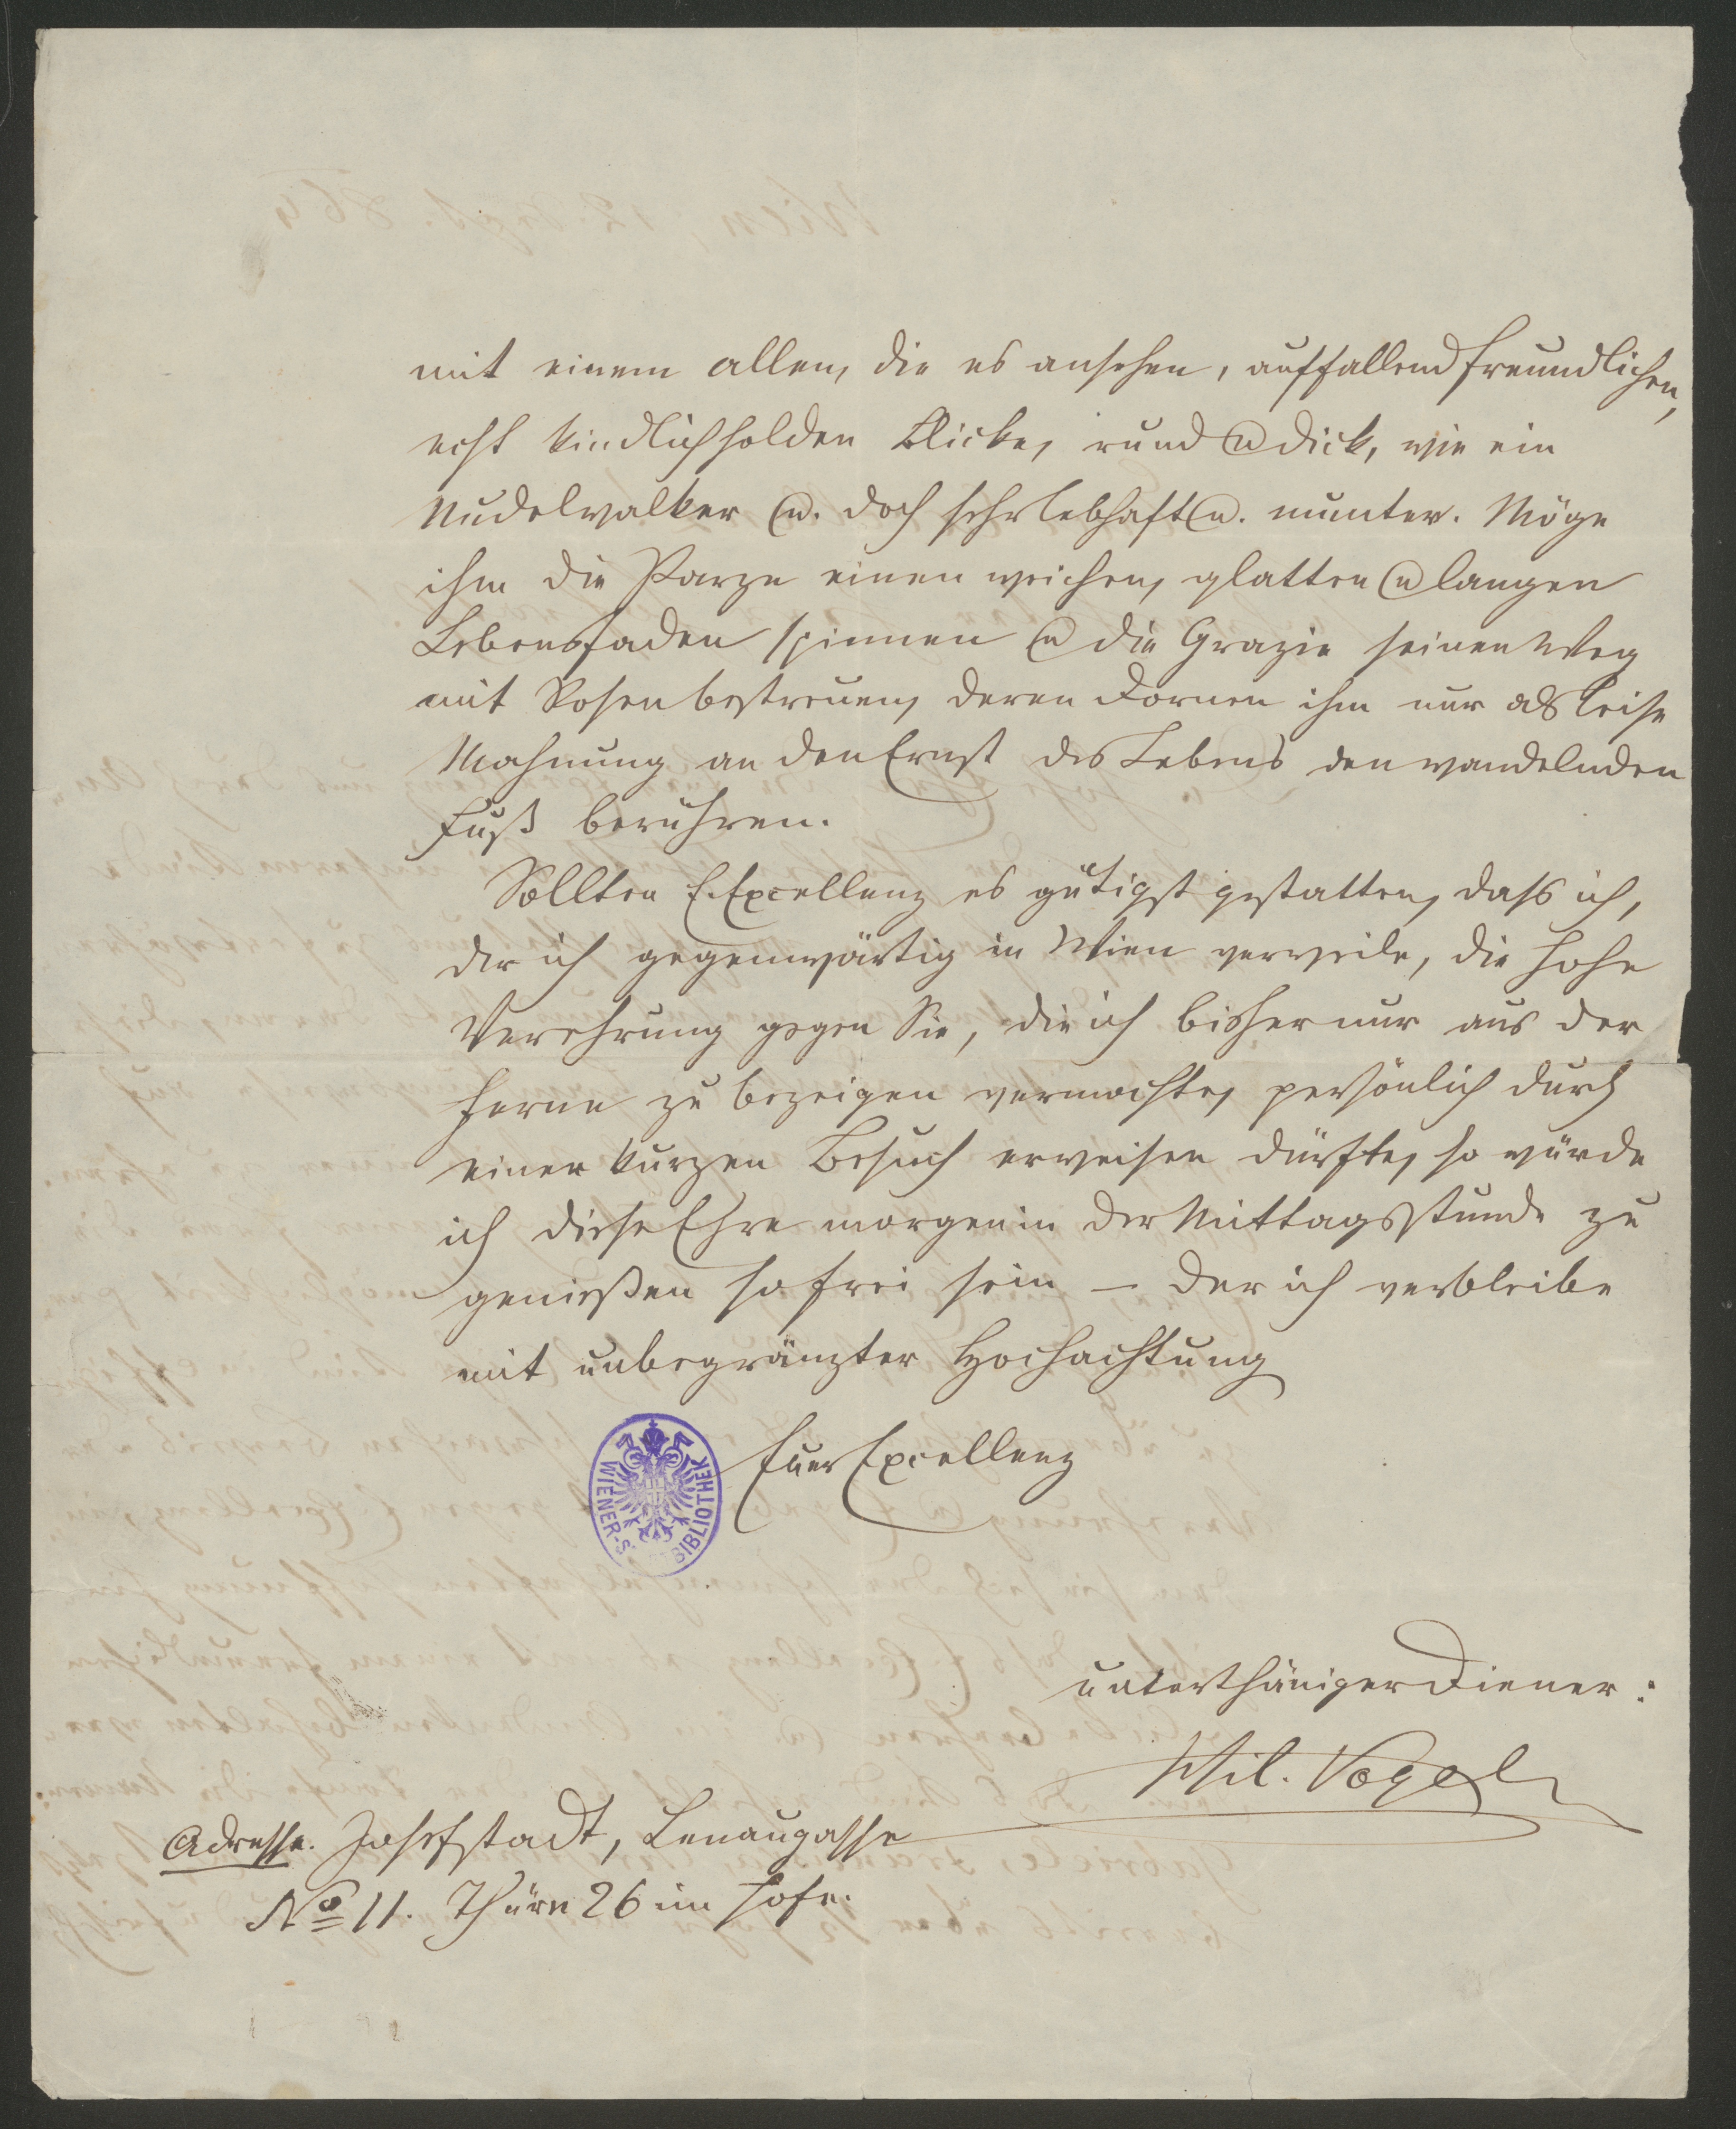 mit einem allen, die es ansehen, auffallend freundlichen,
echt kindlich holden Blicke, rund u dick, wie ein
Nudelwalker u. doch sehr lebhaft u. munter. Möge
ihm die Parze einen weichen, glatten u langen
Lebensfaden spinnen u die Grazie seinen Weg
mit Rosen bestreuen, deren Dornen ihm nur als leise
Mahnung an den Ernst des Lebens den wandelnden
Fuß berühren.
Sollten E. Excellenz es gütigst gestatten, daß ich,
der ich gegenwärtig in Wien verweile, die hohe
Verehrung gegen Sie, die ich bisher nur aus der
Ferne zu bezeigen vermochte, persönlich durch
einen kurzen Besuch erweisen dürfte, so würde
ich diese Ehre morgen in der Mittagsstunde zu
genießen so frei sein – der ich verbleibe
mit unbegränzter Hochachtung
Euer Excellenz
WIENER-S BIBLIOTHEK
unterthäniger Diener:
Phil. Vogel
Adresse. Josefstadt, Lenaugasse
No 11. Thüre 26 im Hofe.